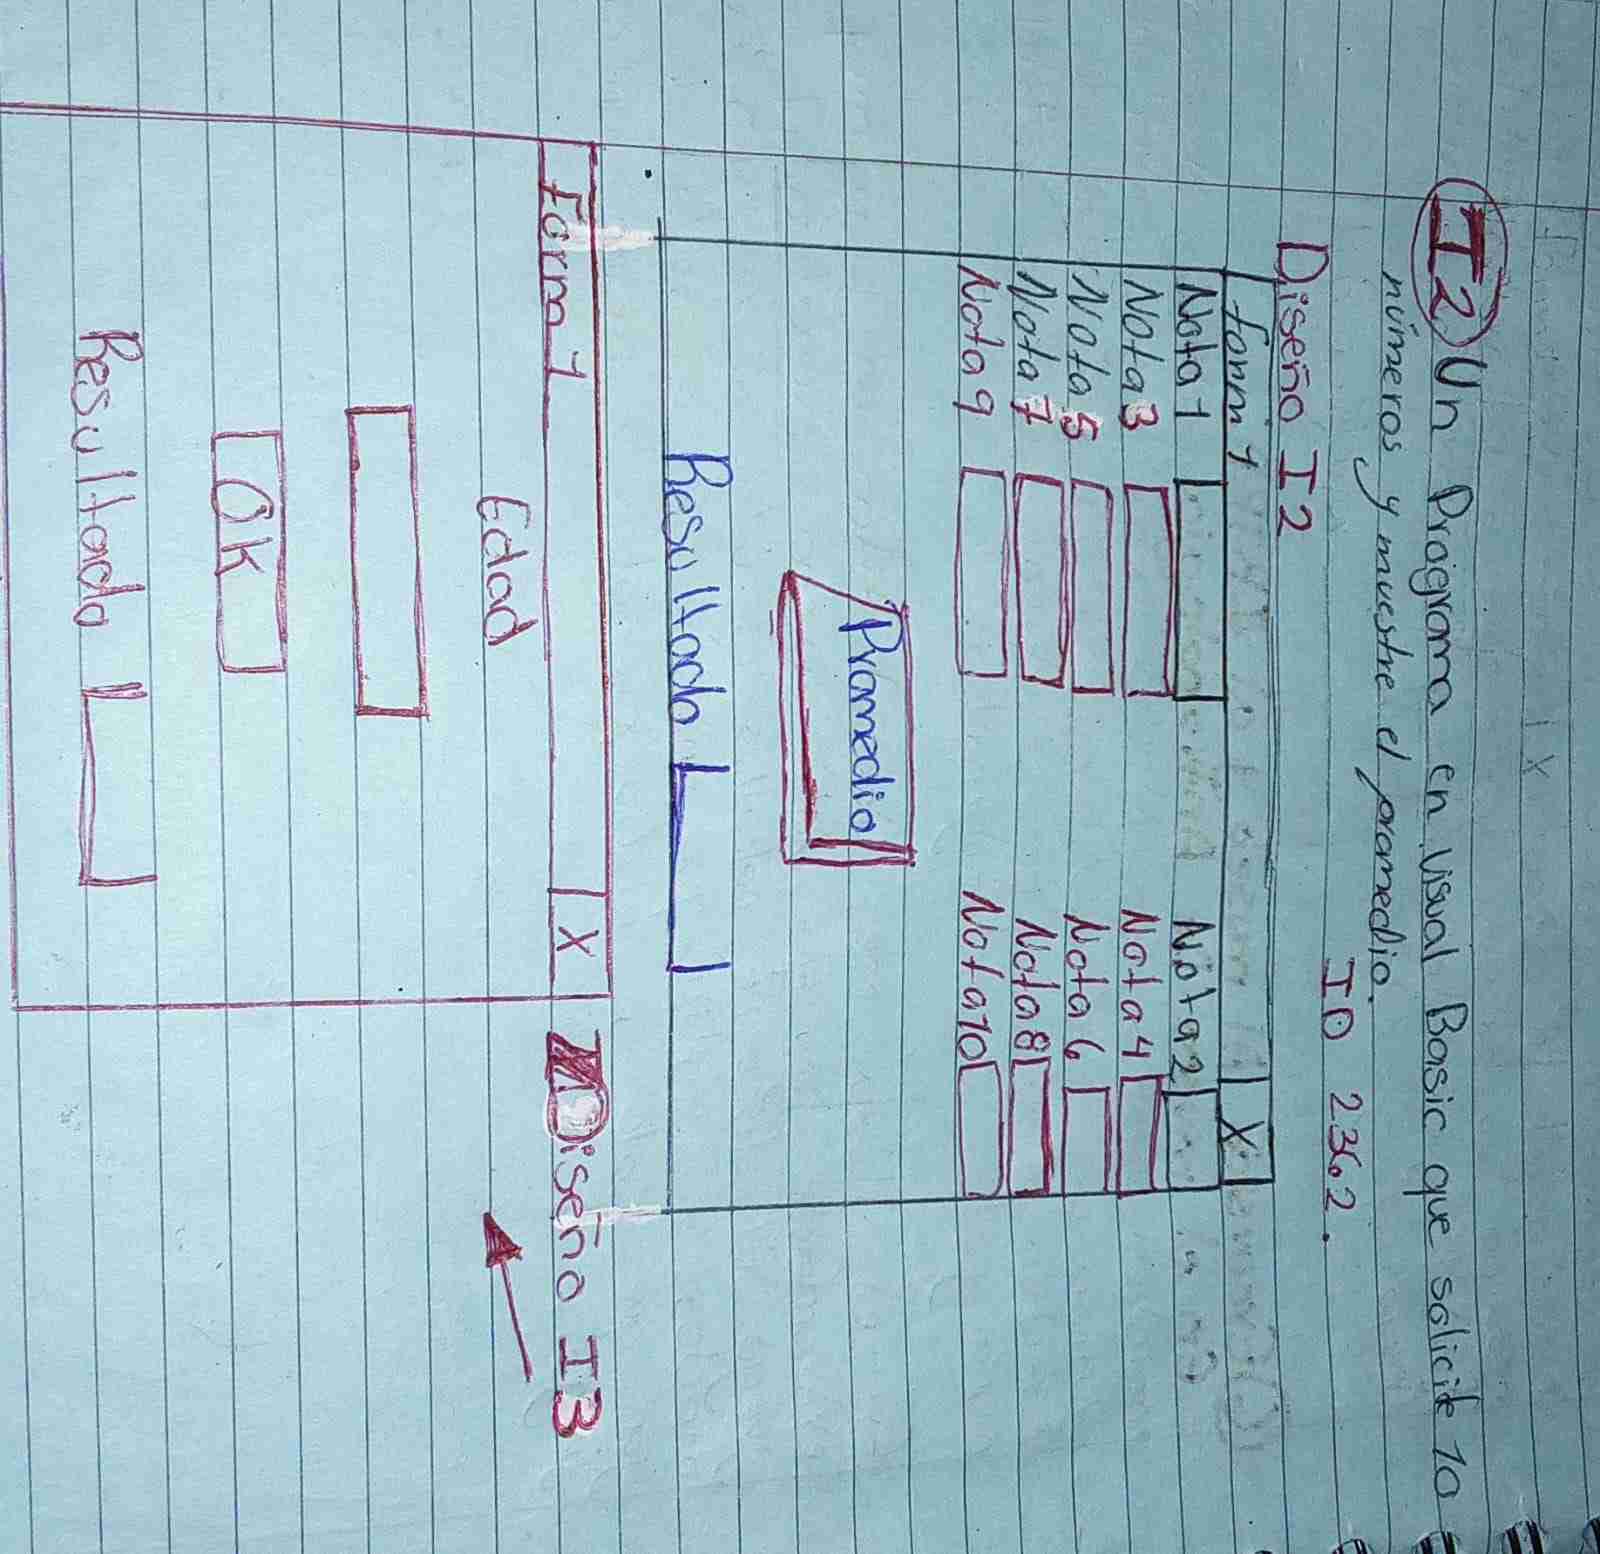 I2) Un Programa en Visual Basic que solicite 10
números y muestre el promedio.
ID 2362.
Diseño I2
form 1 X
Nota 1 Nota 2
Nota 3 Nota 4
Nota 5 Nota 6
Nota 7 Nota 8
Nota 9 Nota 10
Promedio
Resultado
Form 1 X
Diseño I3
Edad
Ok
Resultado